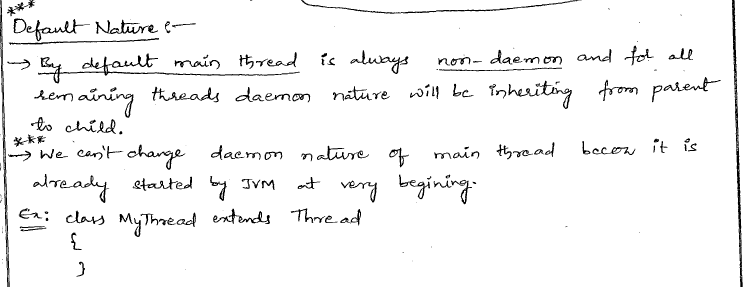 ***
Default Nature :-
→ By default main thread is always non-daemon and for all
remaining threads daemon nature will be inheriting from parent
to child.
***
→ We can't change daemon nature of main thread becoz it is
already started by JVM at very begining.
Ex: class MyThread extends Thread
{
}